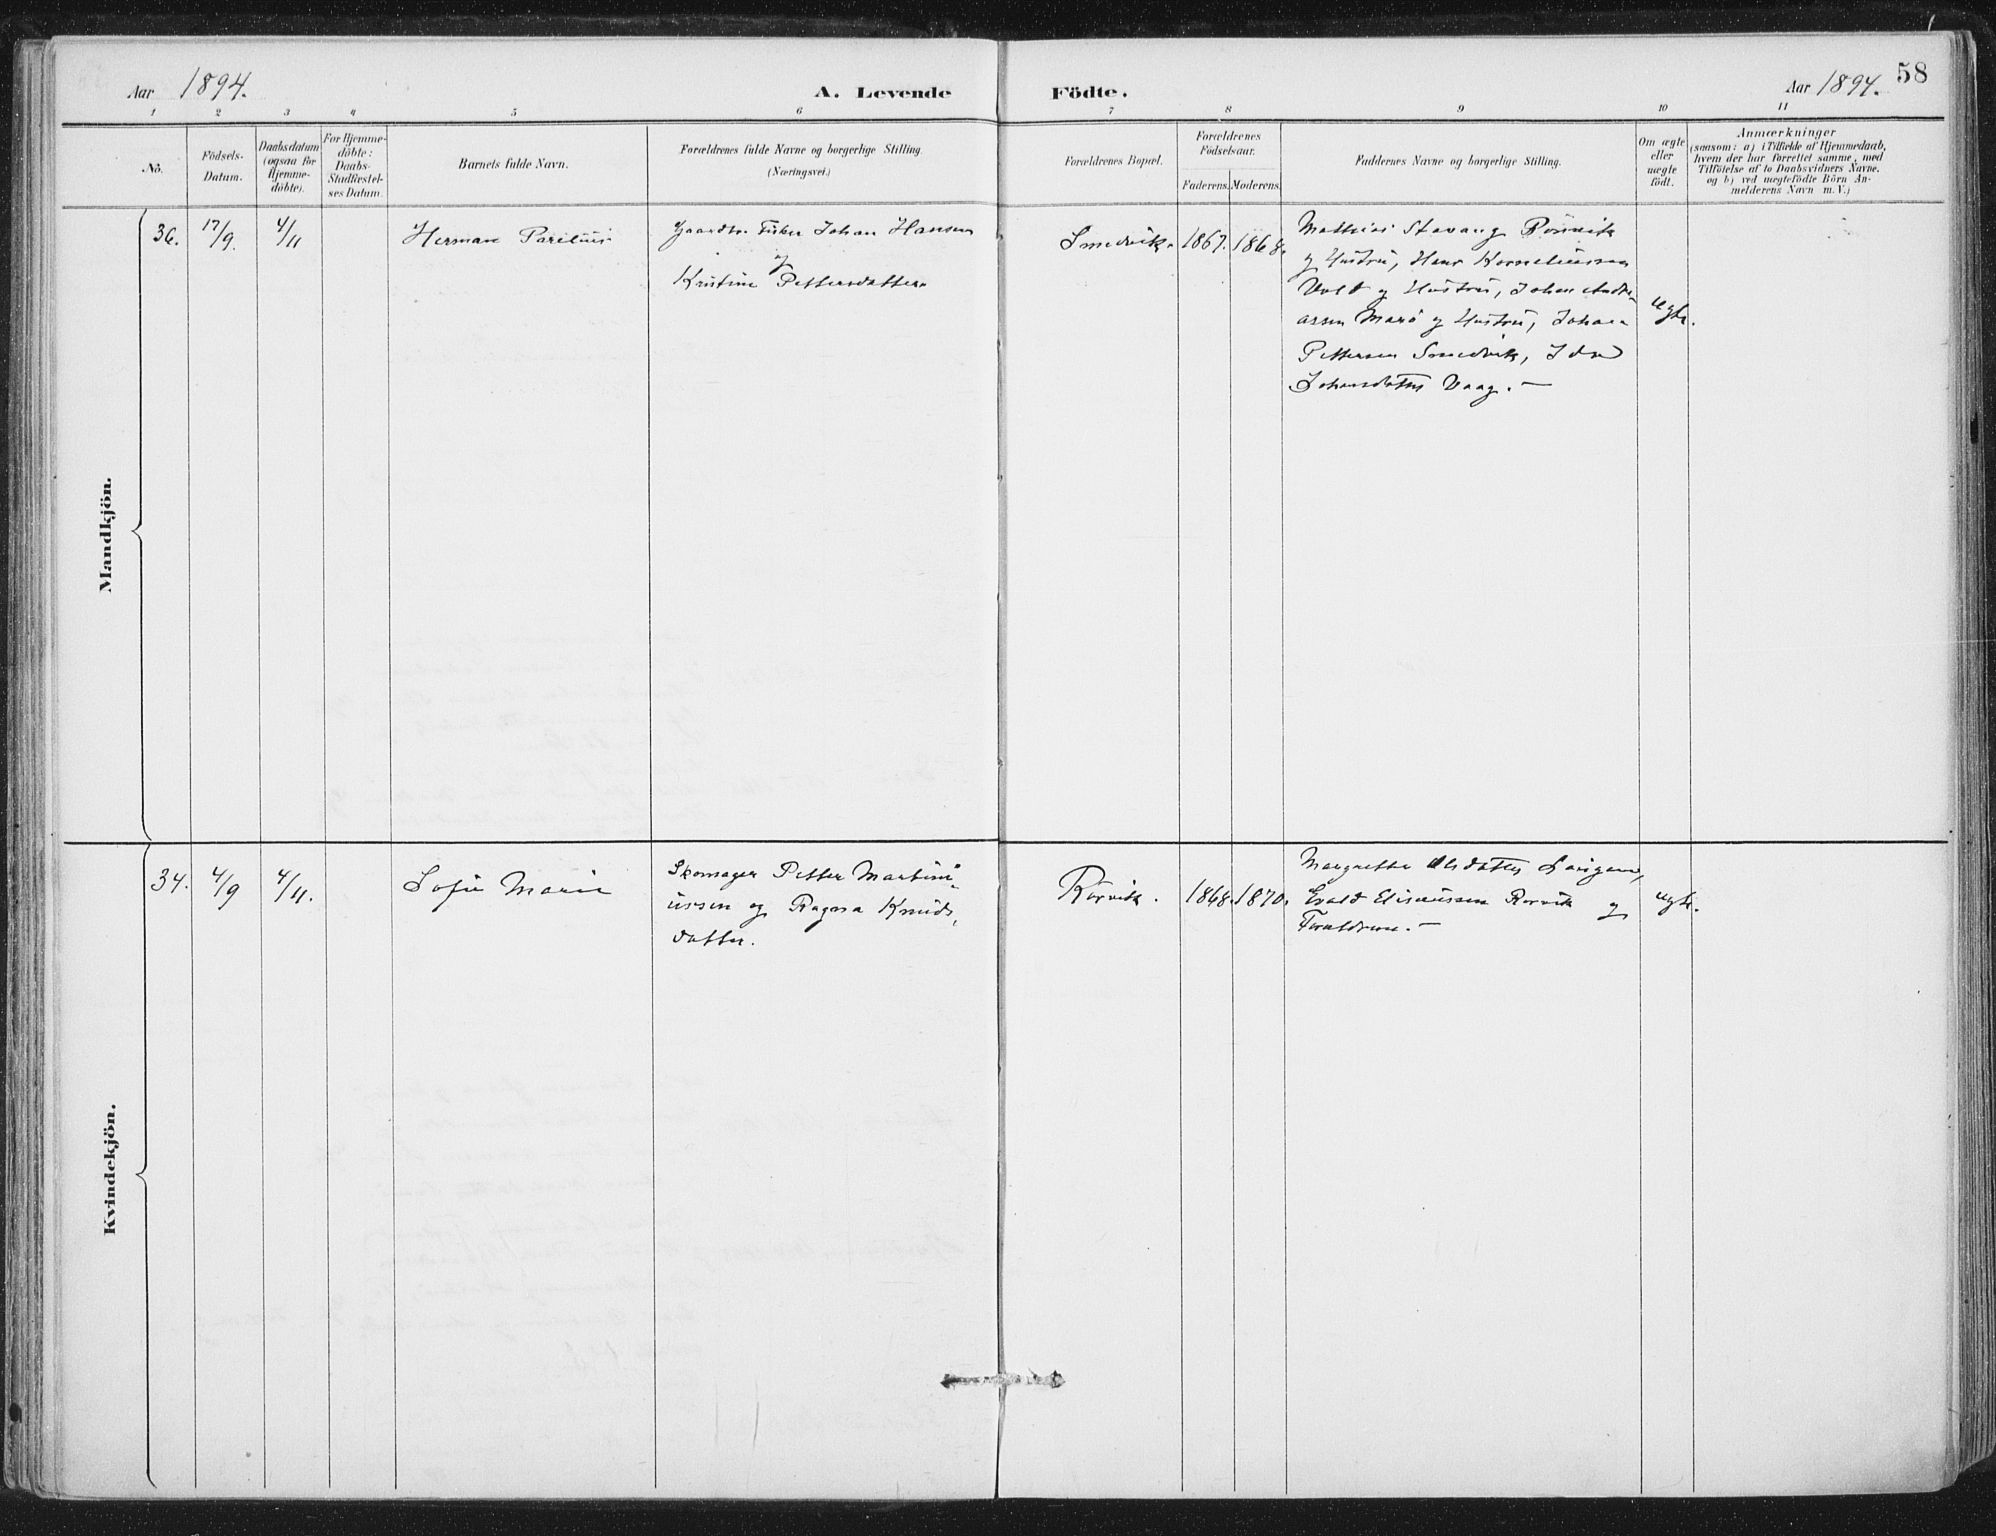 58
Aar 1894.
A. Levende Födte.
Aar 1894.
1 2 3 4 5 6 7 8 9 10 11
No.
Födsels-
Datum.
Daabsdatum
(ogsaa for
Hjemme-
döbte).
For Hjemme-
döbte:
Daabs-
Stadfæstel-
ses Datum.
Barnets fulde Navn.
Forældrenes fulde Navne og borgerlige Stilling.
(Næringsvei.)
Forældrenes Bopæl.
Forældrenes
Födselsaar.
Faderens. Moderens.
Faddernes Navne og borgerlige Stilling.
Om ægte
eller
uægte
födt.
Anmærkninger
(saasom: a) i Tilfælde af Hjemmedaab,
hvem der har forrettet samme, med
Tilföielse af to Daabsvidners Navne,
og b) ved uægtefödte Börn An-
melderens Navn m. V.)
Mandkjön.
36.
17/9.
4/11
Herman Parelius
Gaardbr. Fisker Johan Hansen
og
Kristine Pettersdatter
Smedvik.
1867.
1868.
Mathias Stavang Rörvik
og Hustru, Hans Korneliussen
Vold og Hustru, Johan Andre-
assen Marö og Hustru, Johan
Pettersen Smedvik, Ida
Johansdatter Vaag. —
ægte.
Kvindekjön.
34.
4/9
4/11.
Sofie Marie
Skomager Petter Martini-
ussen og Ragna Knuds-
datter.
Rörvik.
1868.
1870.
Margrethe Olsdatter
Evald Elisæussen Rörvik og
Forældrene. —
ægte.